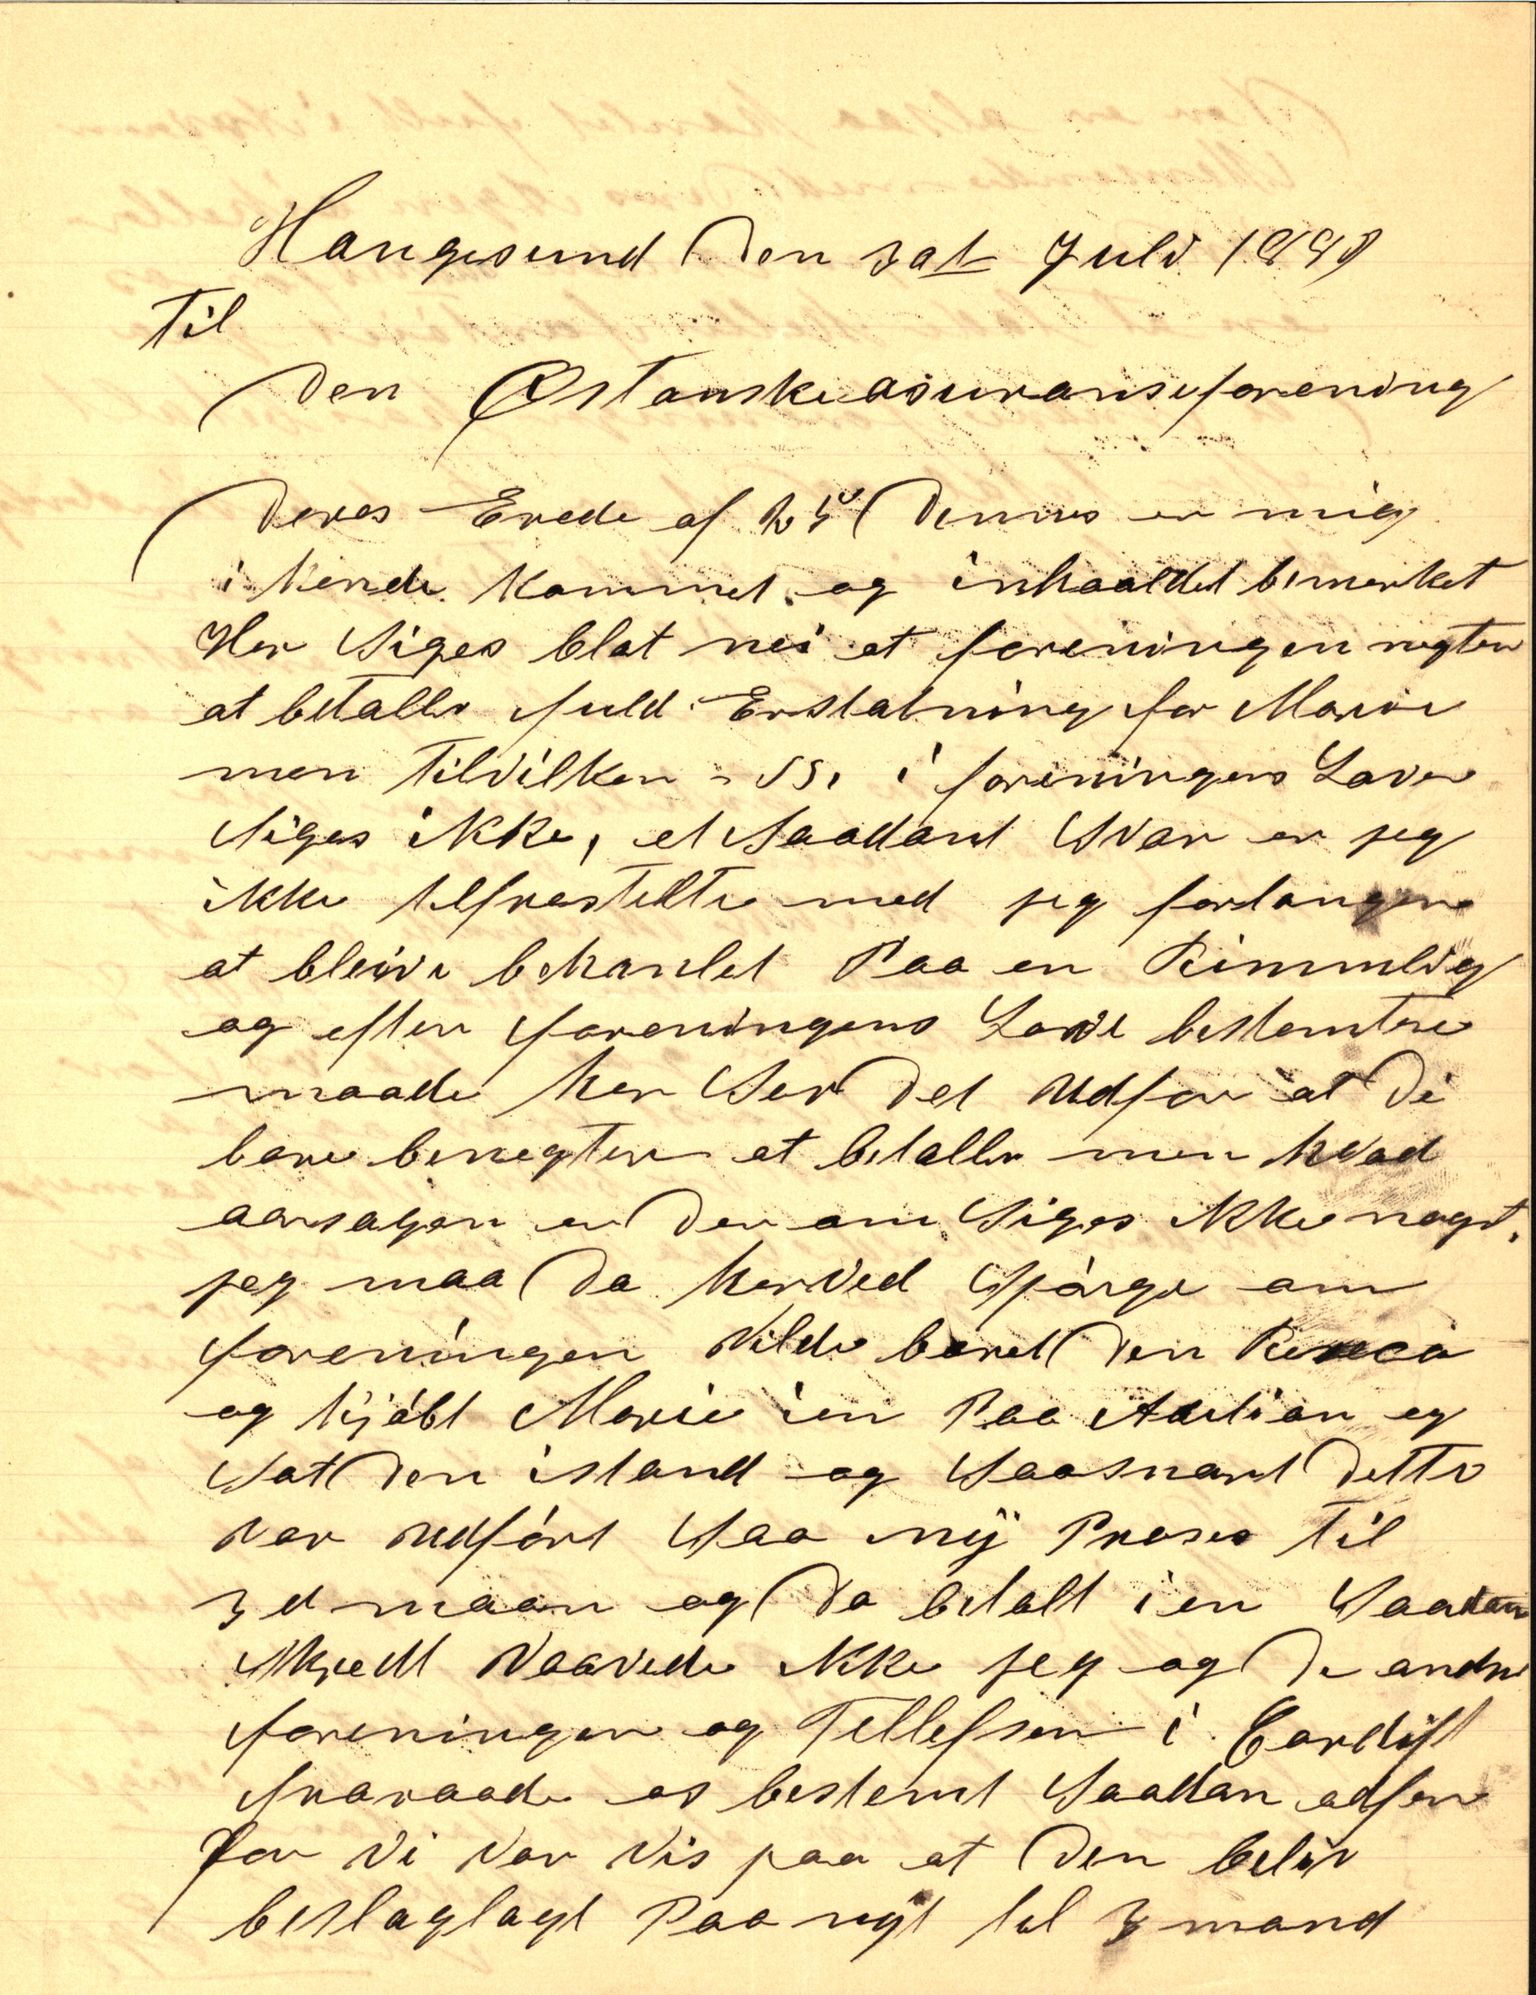 Haugesund Den 30te Juli 1898
Til
Den Østanske asuranseforening
Deres Erede af 25 Dennes er mig
i hende kommet og inhaaldet bemerket
Her Siges blot nei at foreningen negter
at betaller fuld Erstatning for Marie
men tilvilken i foreningens Laver
Siges ikke, et Saadant Svar er jeg
ikke tilfrestillte med jeg forlanger
at bleive behanlet Paa en Rimmelig
og efter foreningens Lave bestemtere
maade her Ser Det Udfor at Di
bare benegter at betaller men hvad
aarsagen er Der om Siges ikke nogt.
jeg maa Da herved Spørge om
foreningen Vilde baret Den
og kjøbt Marie ien Paa Auktion og
Sat Den istand og Saasnart Dette
var Udført Saa nÿ Proses Til
3d maan og Da betalt ien Saadan
Skjedt Vaavede ikke jeg og De andre
foreninger og Tellefsen i Cardift
fraraade os bestemt Saadan adferd
for Vi Var Vis paa at Den belir
beslaglagt Paa nyt til 3 mand